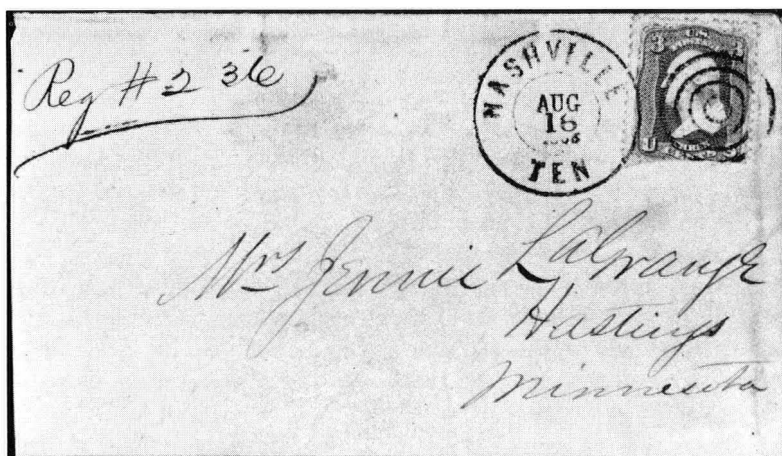 Reg # 2 36
NASHVILLE
AUG
16
TEN
3 3
U
Mrs Jennie LaGrange
Hastings
Minnesota